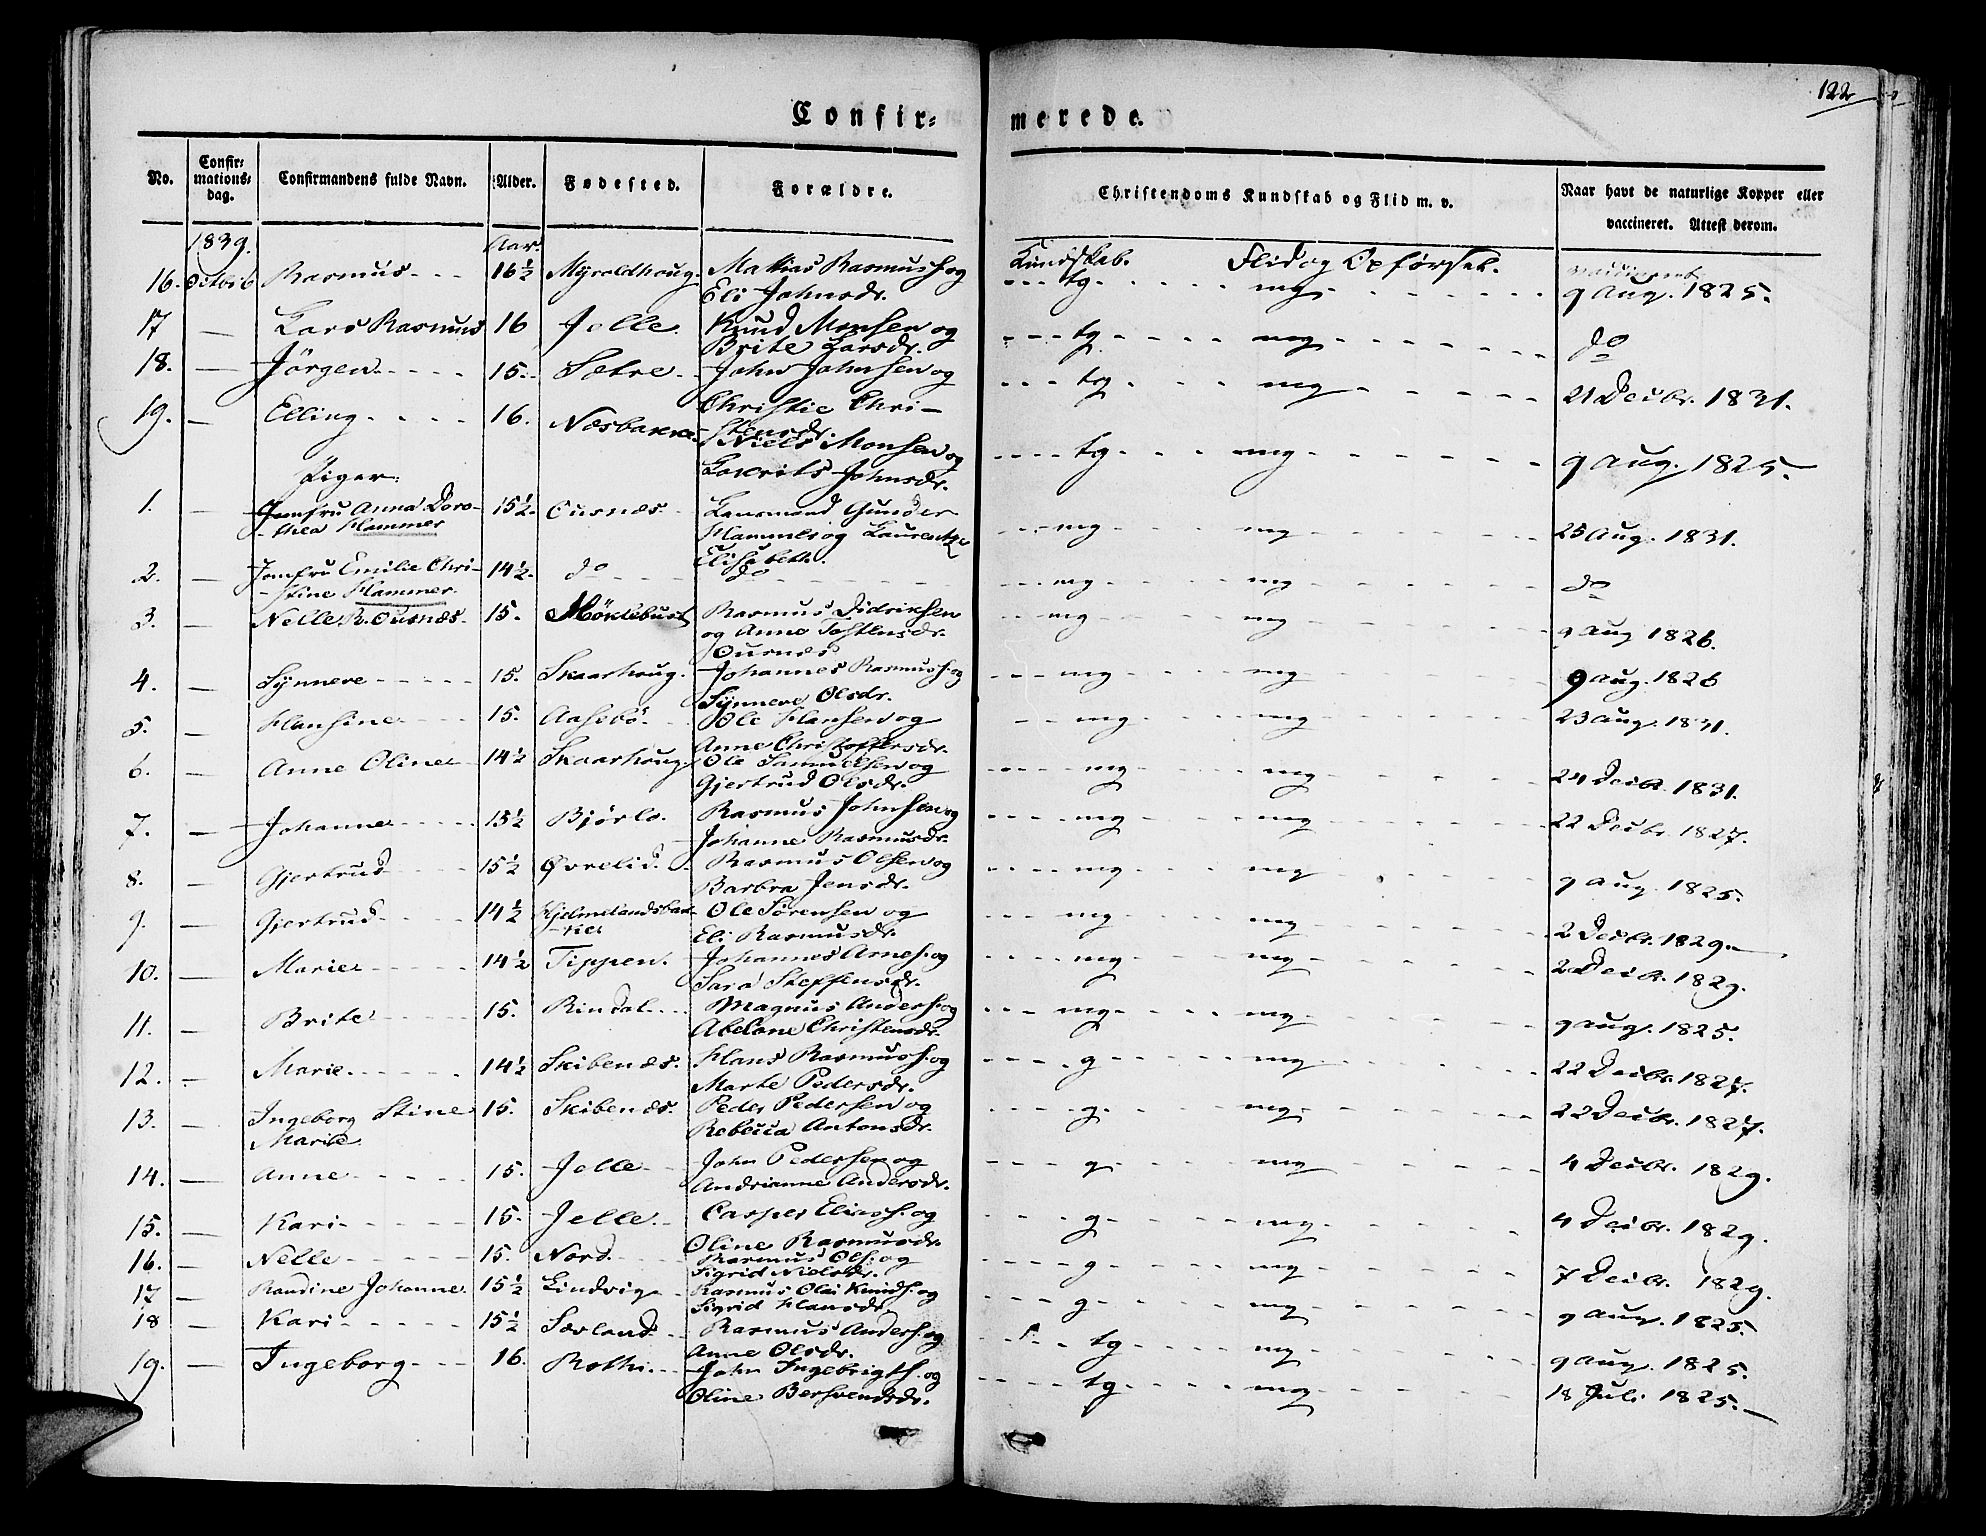 122
Confir= merede.
No. Confir=mations=dag. Confirmandens fulde Navn. Alder. Fødested. Forældre. Christendoms Kundskab og Flid m. v. Naar havt de naturlige Kopper eller vaccineret. Attest derom.
1839. Aar. Kundskab. Flid og Opførsel.
16. Octbr 6 Rasmus 16½ Myroldhoug Mathias Rasmush. og tg mg 9 Aug. 1825.
Eli Johnsdr.
17 — Lars Rasmus 16 Jelle. Knud Monsen og tg mg do
Brite Larsdr.
18. — Jörgen 15. Sætre John Johnsen og tg mg 21 Decbr. 1831.
Christie Chri-
stensdr.
19. — Elling 16. Næsbakken Niels Monsen og tg mg 9 Aug. 1825.
Johnsdr.
Piger.
1. — Jomfru Anna Doro- 15½ Ousnæs Lensmand Gunder mg mg 25 Aug. 1831.
-thea Hammer Hammer og Laurentze
Elisabeth.
2. — Jomfru Emilie Chri- 14½ do do mg mg do
-stine Hammer.
3. — Nelle R. Ousnæs 15. Möklebust Rasmus Didriksen mg mg 9 Aug 1826.
og Anne Tostensdr.
Ousnæs
4. — Synneve 15. Skaarhoug. Johannes Rasmush. og mg mg 9 Aug. 1826
Synneve Olsdr.
5. — Hansine 15. Aasebö Ole Hansen og mg mg 23 Aug. 1831.
Anne Christoffersdr.
6. — Anne Oline 14½ Skaarhoug Ole Samuelsen og mg mg 24 Decbr. 1831.
Gjertrud Olsdr.
7. — Johanne 15½ Bjørlo. Rasmus Johnsen og mg mg 22 Decbr. 1827.
Johanne Rasmusdr.
8. — Gjertrud 15½ Øvrelid. Rasmus Olsen og mg mg 9 Aug 1825.
Barbra Jensdr.
9. — Gjertrud 14½ Hjelmelandsbak- Ole Sörensen og mg mg 2 Decbr. 1829.
-ken Eli Rasmusdr.
10. — Marie 14½ Tippen. Johannes Arnes. og mg mg 2 Decbr. 1829.
Sara Steffensdr.
11. — Brite 15. Rindal Magnus Andersh. og mg mg 9 Aug. 1825.
Abelone Christensdr.
12. — Marie 14½ Skibenæs. Hans Rasmush. og g mg 22 Decbr. 1827.
Marte Pedersdr.
13. — Ingeborg Stine 15. Skibenæs. Peder Pedersen og g mg 22 Decbr. 1827.
Marie Rebecca Antonsdr.
14. — Anne 15. Jelle John Pedersen og g mg 4 Decbr. 1829.
Andrianne Andersdr.
15. — Kari 15. Jelle Casper Eliash. og g mg 4 Decbr. 1829.
Oline Rasmusdr.
16. — Nelle 15. Nord Rasmus Ols. og g mg 7 Decbr. 1829.
Sigrid Nielsdr.
17 — Randine Johanne 15½ Lindvig Rasmus Olai Knudh. og g mg 9 Aug. 1825.
Sigrid Hansdr.
18 — Kari 15½ Sørland Rasmus Andersh. og tg mg 9 Aug. 1825.
Anne Olsdr.
19. — Ingeborg 16. Rothi John Ingebrigth. og tg mg 18 Juli 1825.
Oline Bersvendsdr.